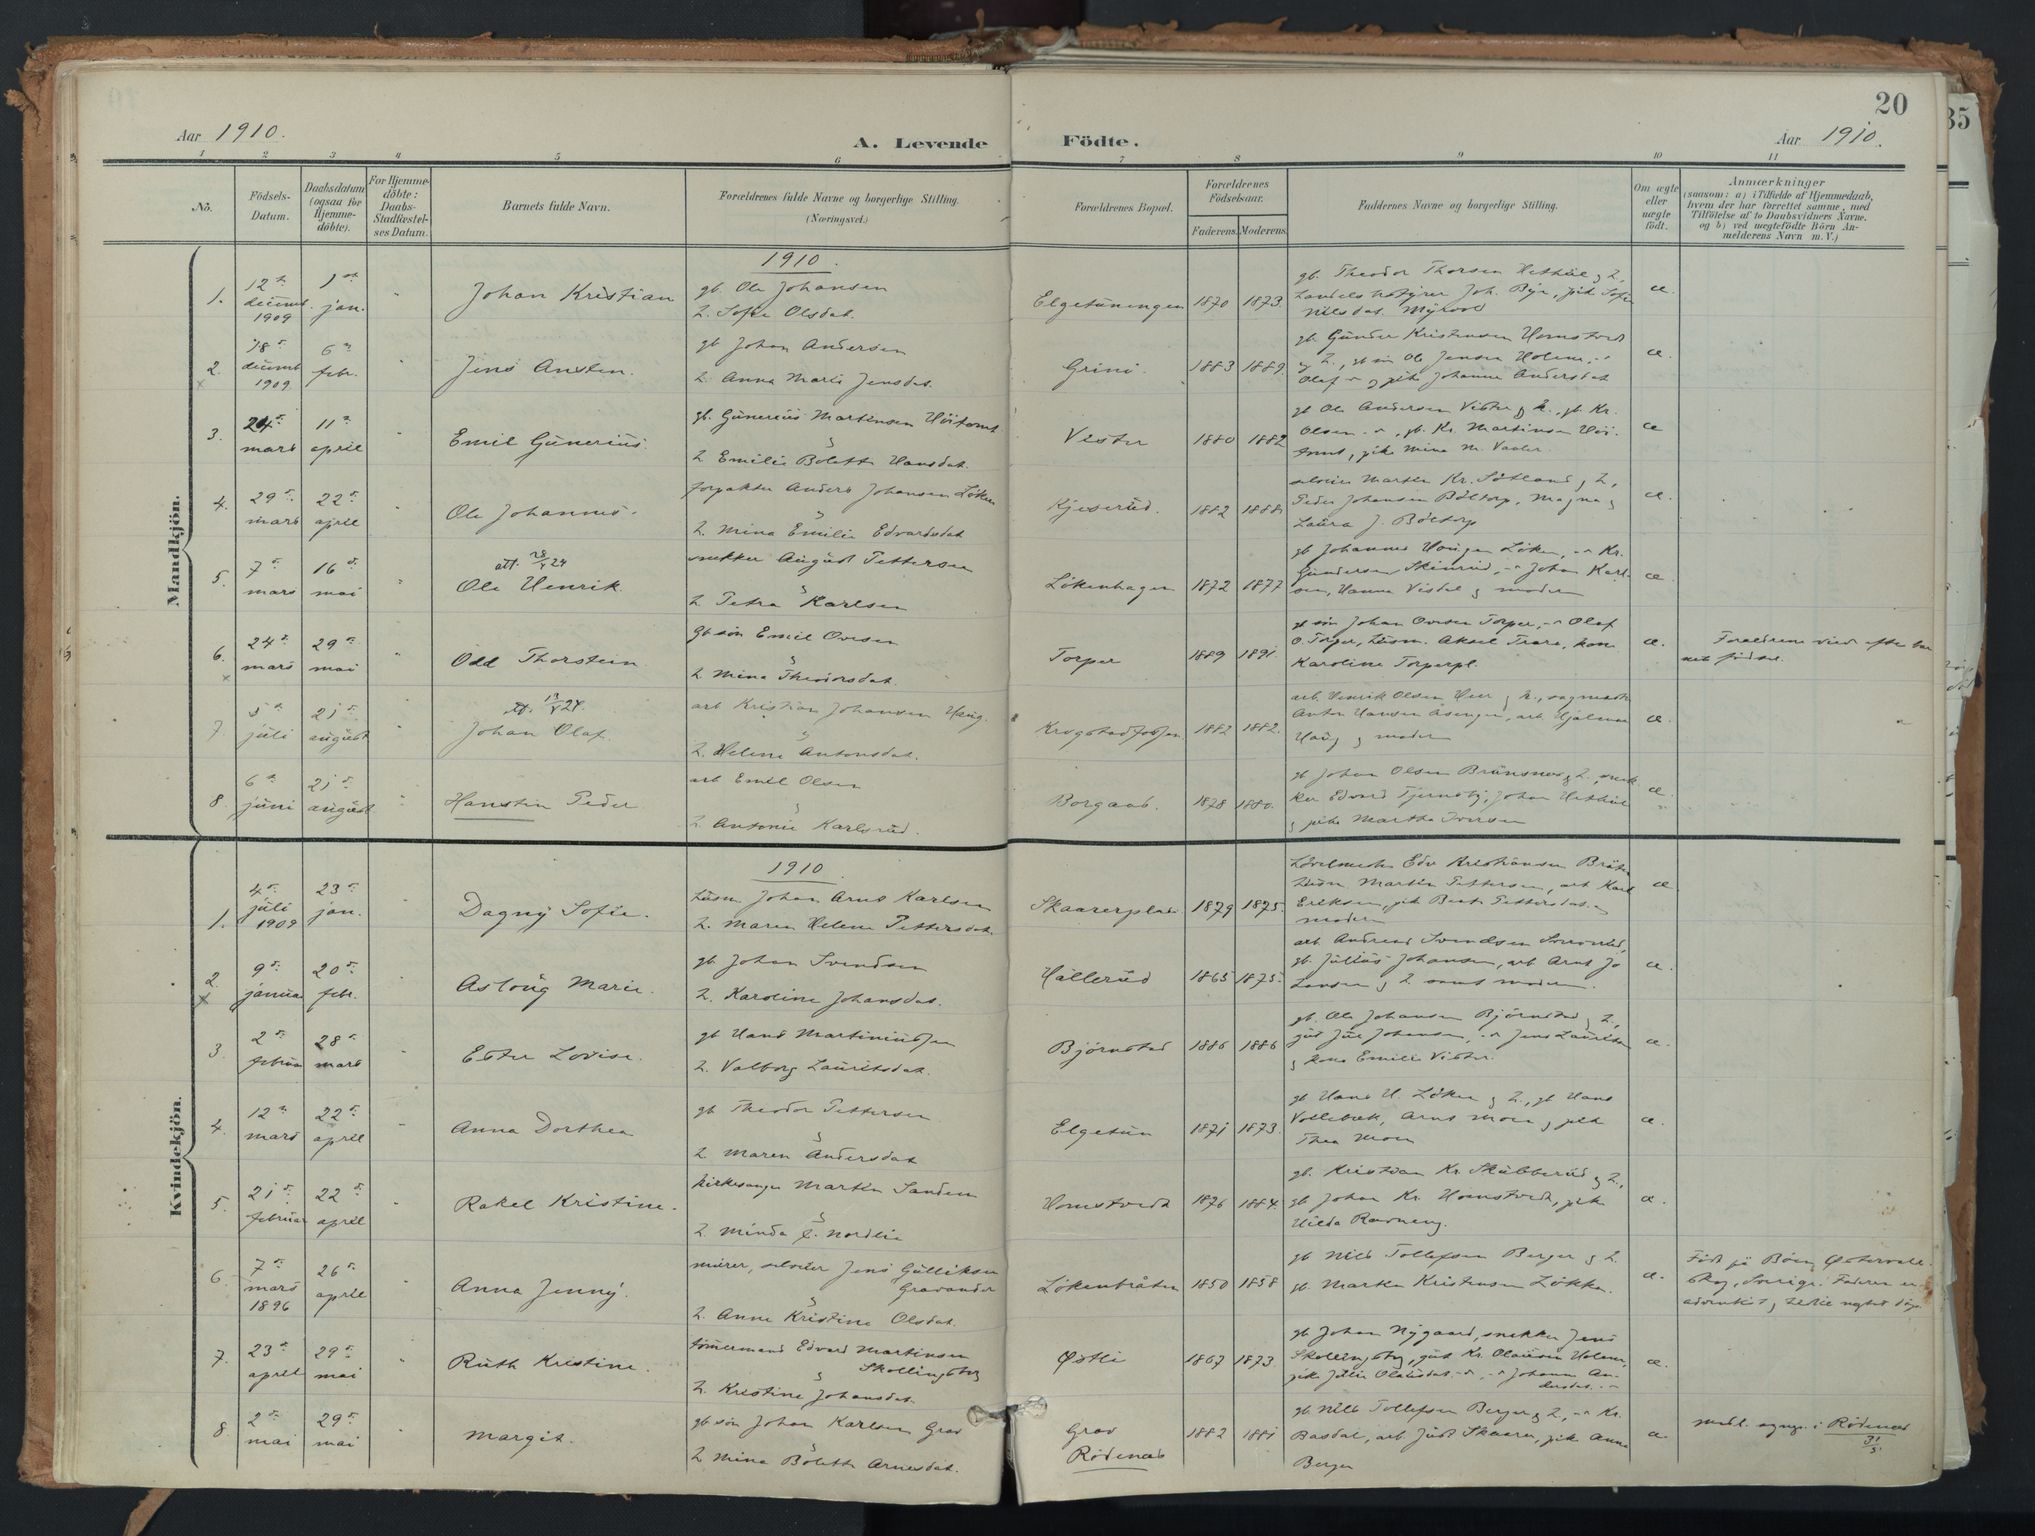 20
Aar 1910.
A. Levende
Födte.
Aar 1910.
1 2 3 4 5 6 7 8 9 10 11
No.
Födsels-
Datum.
Daabsdatum
(ogsaa for
Hjemme-
döbte).
For Hjemme-
döbte:
Daabs-
Stadfæstel-
ses Datum.
Barnets fulde Navn.
Forældrenes fulde Navne og borgerlige Stilling.
(Næringsvei.)
Forældrenes Bopæl.
Forældrenes
Födselsaar.
Faderens. Moderens.
Faddernes Navne og borgerlige Stilling.
Om ægte
eller
uægte
födt.
Anmærkninger
(saasom: a) i Tilfælde af Hjemmedaab,
hvem der har forrettet samme, med
Tilföielse af to Daabsvidners Navne.
og b) ved uægtefödte Börn An-
melderens Navn m. V.)
Mandkjön.
1910.
1.
12te
decemb.
1909
1ste
jan.
Johan Kristian
gb. Ole Johansen
h. Sofie Olsdat.
Elgetuningen
1870 1873.
gb. Theodor Thorsen
Joh. Bye, pike Sofie
Nilsdat. Myrvold
æ.
2.
18de
decemb
1909
6te
febr.
Jens Ansten.
gb Johan Andersen
h. Anna Marie Jensdat.
Grini.
1883 1889.
gb. Gunder Kristensen Homstvedt
g h., gb søn Ole Jensen Holene
Olaf g pike Johanne Andersdat
æ.
3.
24de
mars
11te
april
Emil Gunerius.
gb. Gunerius Martinsen Höitomt
h Emilie Bolette Hansdat.
Vister
1880 1882
gb Ole Andersen Vister g h., gb. Kr.
Olsen gb. Kr. Martinsen Höi-
tomt, pike Mina M. Vaaler.
æ
4.
29de
mars
22de
april
Ole Johannes.
forpakter Anders Johansen Löken
h. Mina Emilie Edvardsdat
Kjeserud.
1882 1888
selveier Martin Kr. Sötland g h,
Peder Johansen Böltorp, Magna g
Laura J. Böltorp
æ.
5.
7de
mars
16de
mai
att. 28/5 24
Ole Henrik.
snekker August Pettersen
h Petra Karlsen
Lökenhagen
1872 1877
gb Johannes Haugen Löken, Kr.
Gundersen Skinrud, Johan Karl-
sen, Hanna Visdal g moderen
æ.
6.
24de
mars
29de
mai
Odd Thorstein
gb søn Emil Ovesen
h Mina Theodorsdat.
Torper
1889 1891.
gb søn Johan Ovesen Torper, Olaf
O. Torper, husm. Aksel Trara, kone
Karoline Torperpl.
æ.
Forældrene viet efter bar
nets fødsel.
7.
5te
juli
21de
august
att. 13/5 24.
Johan Olaf.
arb Kristian Johansen Haug.
h. Helene Antonsdat.
Krogstadfossen
1882 1882.
arb. Henrik Olsen Heer g h., sagmester
Anton Hansen Åsengen, arb Hjalmar
Haug g moderen
æ.
8.
6te
juni
21de
august
Hanstin Peder
arb Emil Olsen
h Antonie Karlsrud.
Borgaas.
1878 1880.
gb Johan Olsen Brunsnes g h., snek
ker Edvard Tjernsby, Johan
g pike Martha Iversen
æ.
Kvindekjön.
1910.
1.
4de
juli
1909
23de
jan.
Dagny Sofie.
husm. Johan Arnt Karlsen
h. Maren Helene Pettersdat.
Skaarerplads.
1879 1875.
Edv Kristiansen Bråten
husm Martin Pettersen, arb Karl
Eriksen, pik Pettersdat. g
moderen
æ.
2.
9de
januar
20de
febr.
Aslaug Marie.
gb. Johan Svendsen
h. Karoline Johansdat.
Hallerud
1865 1875.
arb. Andreas Svendsen
gb. Julius Johansen, arb. Arnt Jo
hansen g h samt moderen.
æ.
3.
2de
februar
28de
mars
Ester Lovise.
gb Hans Martiniussen
h. Valborg Lauritsdat.
Bjørnstad
1886 1886
gb. Ole Johansen Bjørnstad g h.,
gut Johansen, Jens Lauritsen
g kone Emilie Vister.
æ.
4.
12te
mars
22de
april
Anna Dorthea
gb Theodor Pettersen
h. Maren Andersdat
Elgetun
1871 1873.
gb Hans H. Löken g h., gb Hans
Vollebæk, Arnt Moen g pike
Thea Moen
æ.
5.
21de
februar
22de
april
Rakel Kristine.
kirkesanger Martin Sandem
h. Minda E. Nordlie
Homstvedt
1876 1884.
gb. Kristian Kr. Skubberud g h.,
gb Johan Kr. Homstvedt, pik
Hilda Ravneng.
æ.
6.
7de
mars
1896
26de
april
Anna Jenny.
murer, selveier Jens Gulliksen
Gravander
h. Anne Kristine Olsdat.
Lökenbråten
1850 1858
gb Nils Tollefsen Berger g h.
gb. Martin Kristensen Løkka.
æ.
Født på Bön, Østervall-
skog, Sverige. Faderen er
adventist
7.
23de
april
29de
mai
Ruth Kristine.
tømmermand Edvard Martinsen
Skollingsby
h. Kristine Johansdat.
Østli
1867 1873.
gb Johan Nygaard, snekker Jens
Skollingsby, gut Kr. Olausen Holene,
pike Julie Olausdat. Johanne An-
dersdat.
æ.
8.
2de
mai
29de
mai
Margit.
gb søn Johan Karlsen Grav
h Mina Bolette Arnesdat.
Grav
Rödenæs
1882 1881
gb. Nils Tollefsen Berger g h., Kr.
Basdal, arb. Just Skaarer, pike Anna
Berger
æ.
medl. i Rödenæs
31/5